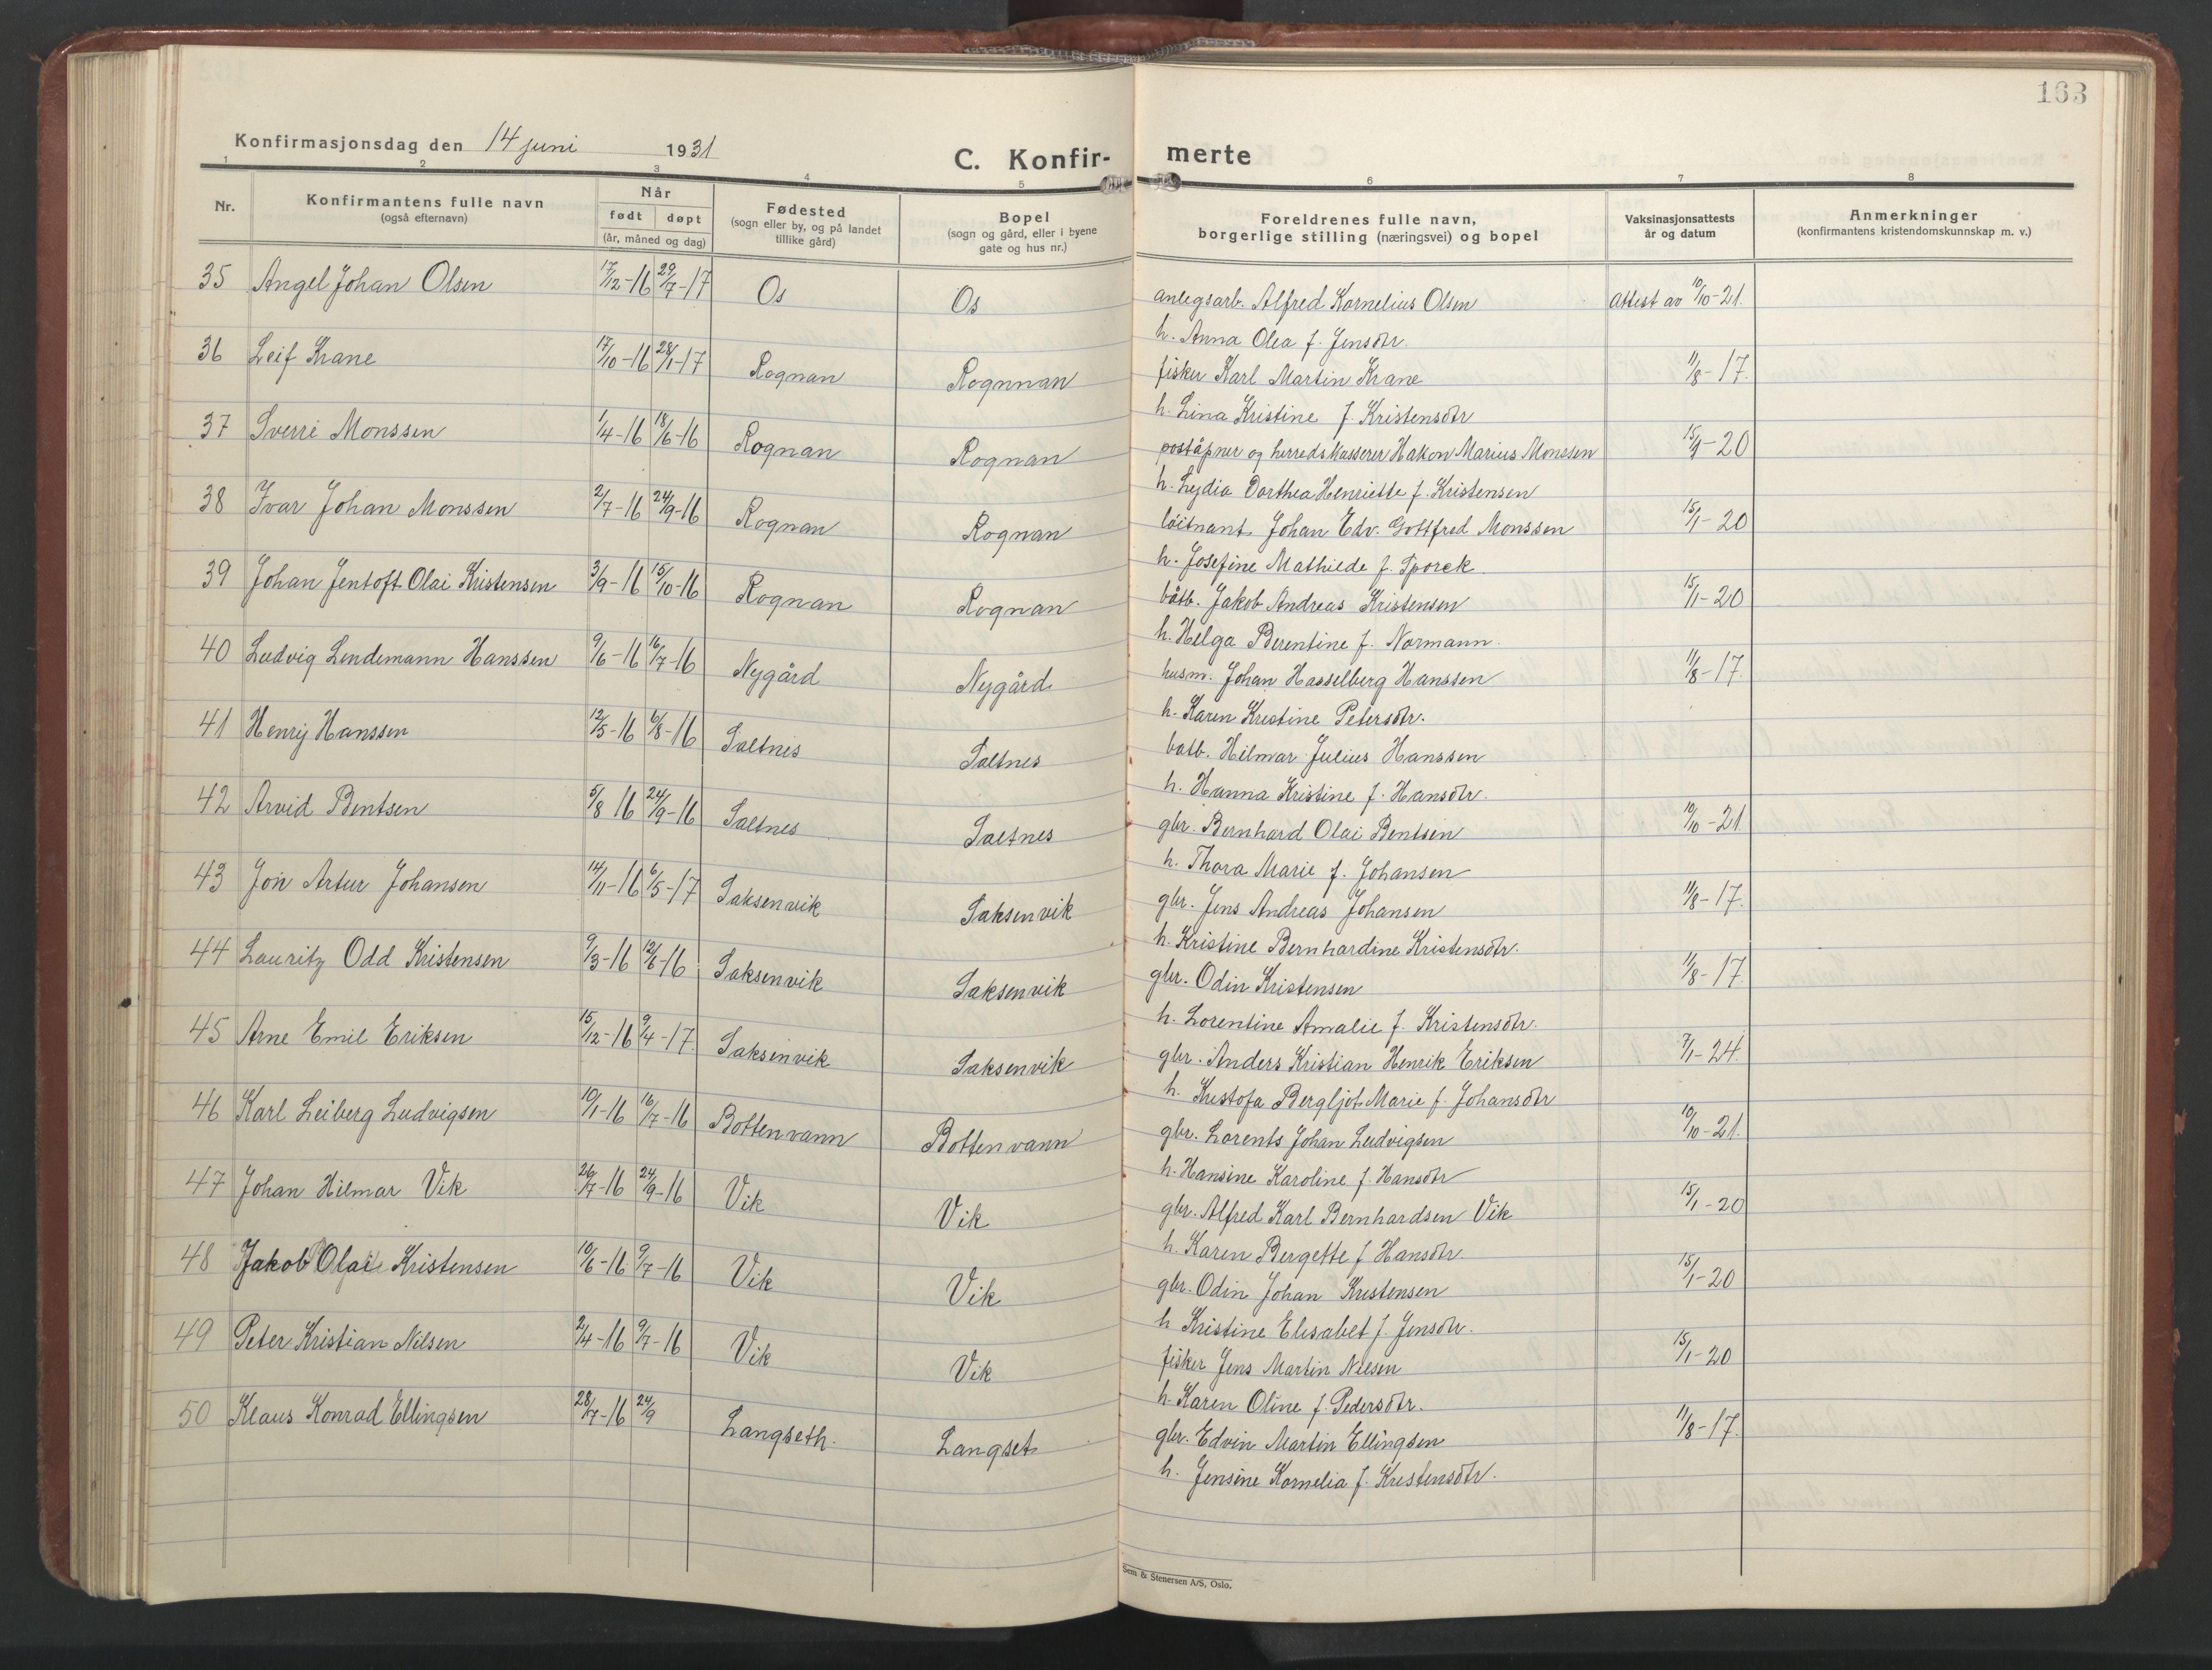 163
Konfirmasjonsdag den 14 juni 1931
C. Konfir- merte
1 2 3 4 5 6 7 8
Nr.
Konfirmantens fulle navn
(også efternavn)
Når
født døpt
(år, måned og dag)
Fødested
(sogn eller by, og på landet
tillike gård)
Bopel
(sogn og gård, eller i byene
gate og hus nr.)
Foreldrenes fulle navn,
borgerlige stilling (næringsvei) og bopel
Vaksinasjonsattests
år og datum
Anmerkninger
(konfirmantens kristendomskunnskap m. v.)
35 Angel Johan Olsen 17/12-16 29/7-17 Os Os anlegsarb. Alfred Kornelius Olsen attest av 10/10-21.
h. Anna Olea f. Jensdtr.
36 Leif Krane 17/10-16 28/1-17 Rognan Rognnan fisker Karl Martin Krane 11/8-17.
h. Lina Kristine f. Kristensdtr
37 Sverre Monssen 1/4-16 18/6-16 Rognan Rognan poståpner og herredskasserer Hakon Marius Monssen 15/9-20
h. Lydia Dorthea Henriette f. Kristensen
38 Ivar Johan Monssen 2/7-16 24/9-16 Rognan Rognan löitnant Johan Edv. Gottfred Monssen 15/1-20
h. Josefine Mathilde f. Sporck
39 Johan Jentoft Olai Kristensen 3/9-16 15/10-16 Rognan Rognan båtb. Jakob Andreas Kristensen 15/1-20
h. Helga Berentine f. Normann.
40 Ludvig Lindemann Hanssen 9/6-16 16/7-16 Nygård Nygård husm. Johan Hasselberg Hanssen 11/8-17.
h. Karen Kristine Petersdtr.
41 Henry Hanssen 12/5-16 6/8-16 Saltnes Saltnes batb. Hilmar Julius Hanssen
h. Hanna Kristine f. Hansdtr.
42 Arvid Bentsen 5/8 16 24/9-16 Saltnes Saltnes gbr. Bernhard Olai Bentsen 10/10-21
h. Thora Marie f. Johansen
43 Jon Artur Johansen 14/11-16 6/5-17 Saksenvik Saksenvik gbr. Jens Andreas Johansen 11/8-17.
h. Kristine Bernhardine Kristensdtr.
44 Lauritz Odd Kristensen 9/3-16 12/6-16 Saksenvik Saksenvik gbr. Odin Kristensen 11/8-17
h. Lorentine Amalie f. Kristensdtr.
45 Arne Emil Eriksen 15/12-16 9/4-17. Saksenvik Saksenvik gbr. Anders Kristian Henrik Eriksen 7/1-24.
h. Kristofa Bergljot Marie f. Johansdtr
46 Karl Leiberg Ludvigsen 10/1-16 16/7-16 Bottenvann Bottenvann gbr. Lorents Johan Ludvigsen 10/10-21.
h. Hansine Karoline f. Hansdtr
47 Johan Hilmar Vik 26/7-16 24/9-16 Vik Vik gbr. Alfred Karl Bernhardsen Vik 15/1-20
h. Karen Bergette f Hansdtr.
48 Jakob Olai Kristensen 10/6-16 9/7-16 Vik Vik gbr. Odin Johan Kristensen 15/1-20
h Kristine Elisabet f. Jensdtr.
49 Peter Kristian Nilsen 2/4-16 9/7-16 Vik Vik fisker Jens Martin Nilsen 15/1-20
h. Karen Oline f. Pedersdtr.
50 Klaus Konrad Ellingsen 28/7-16 24/9 Langseth. Langset gbr. Edvin Martin Ellingsen 11/8-17.
h. Jensine Kornelia f. Kristensdtr.
Sem & Stenersen A/S, Oslo.